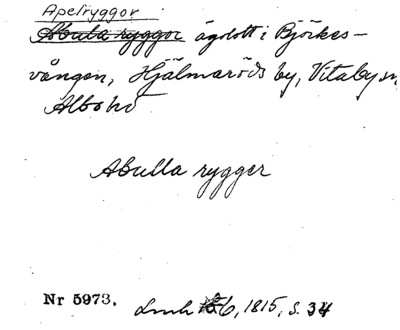 Apelryggor
Abula ryggor ägolott i Björkes-
vången, Hjälmaröds by, Vitaby sn,
Albo hd
Abulla rygger
Nr 5973. Lmh B6, 1815, s. 34